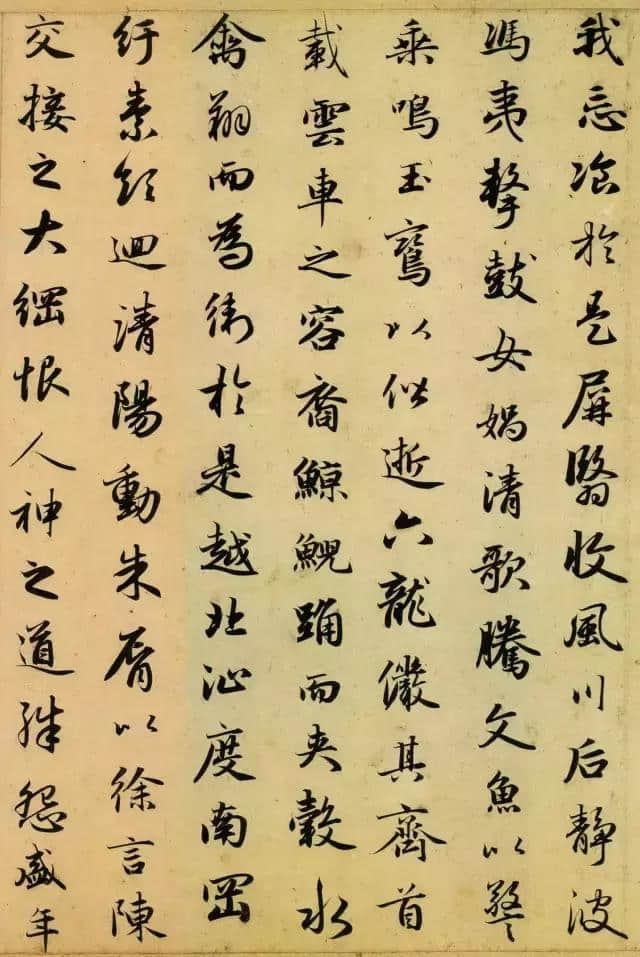 我忘飡於是屏翳收風川后靜波
馮夷擊鼓女媧清歌騰文魚以警
乗鳴玉鸞以偕逝六龍儼其齊首
載雲車之容裔鯨鯢踊而夾轂水
禽翔而為衛於是越北沚度南岡
紆素領迴清陽動朱脣以徐言陳
交接之大綱恨人神之道殊怨盛年